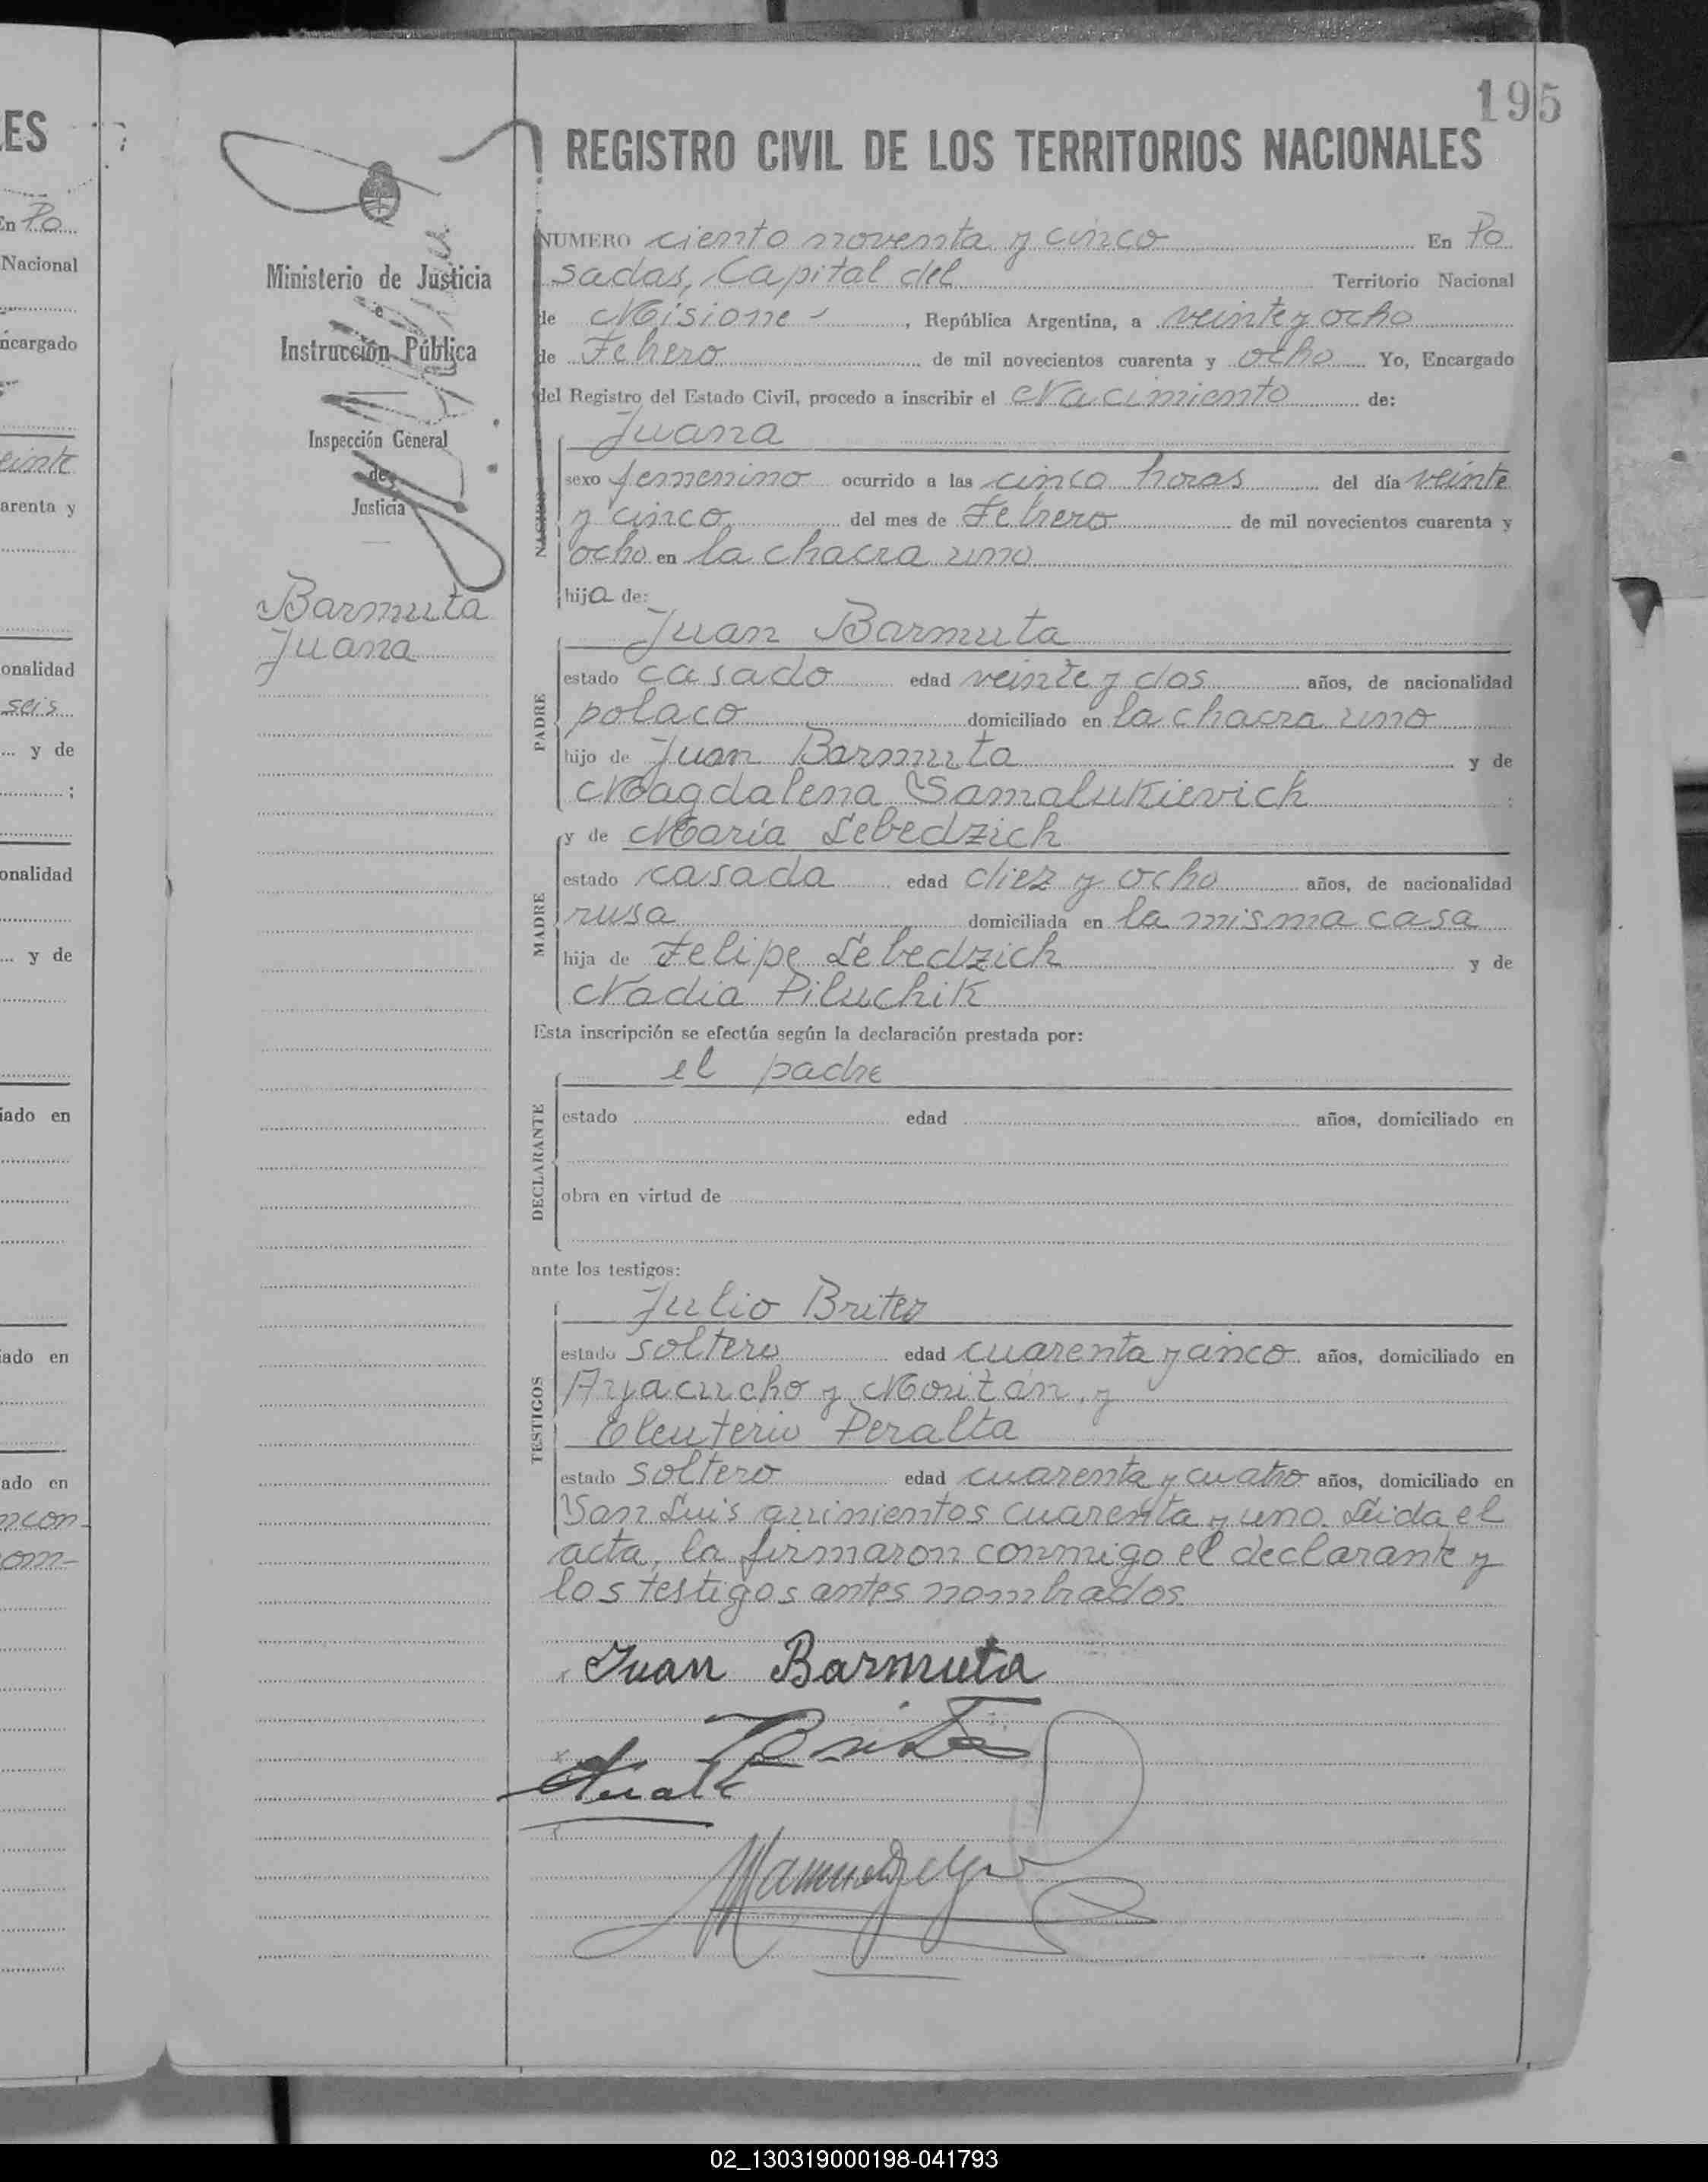 195
REGISTRO CIVIL DE LOS TERRITORIOS NACIONALES
Ministerio de Justicia
e
Instrucción Pública
Inspección General
de
Justicia
Barmuta
Juana
NUMERO ciento noventa y cinco En Po
sadas, Capital del Territorio Nacional
de Misiones, República Argentina, a veinte y ocho
de Febrero de mil novecientos cuarenta y ocho Yo, Encargado
del Registro del Estado Civil, procedo a inscribir el Nacimiento de:
Juana
sexo femenino ocurrido a las cinco horas del día veinte
y cinco del mes de Febrero de mil novecientos cuarenta y
ocho en la chacra uno
hija de:
PADRE
Juan Barmuta
estado casado edad veinte y dos años, de nacionalidad
polaco domiciliado en la chacra uno
hijo de Juan Barmuta y de
Magdalena Samalukievich
MADRE
y de María Lebedzich
estado casada edad diez y ocho años, de nacionalidad
rusa domiciliada en la misma casa
hija de Felipe Lebedzich y de
Nadia Piluchik
Esta inscripción se efectúa según la declaración prestada por:
DECLARANTE
el padre
estado edad años, domiciliado en
obra en virtud de
ante los testigos:
TESTIGOS
Julio Britez
estado soltero edad cuarenta y cinco años, domiciliado en
Ayacucho y Moritán, y
Eleuterio Peralta
estado soltero edad cuarenta y cuatro años, domiciliado en
San Luis quinientos cuarenta y uno. Leida el
acta, la firmaron conmigo el declarante y
los testigos antes nombrados
Juan Barmuta
ES
En Po
Nacional
ncargado
einte
arenta y
onalidad
seis
y de
;
onalidad
y de
iado en
iado en
ado en
ncon-
om-
02_130319000198-041793